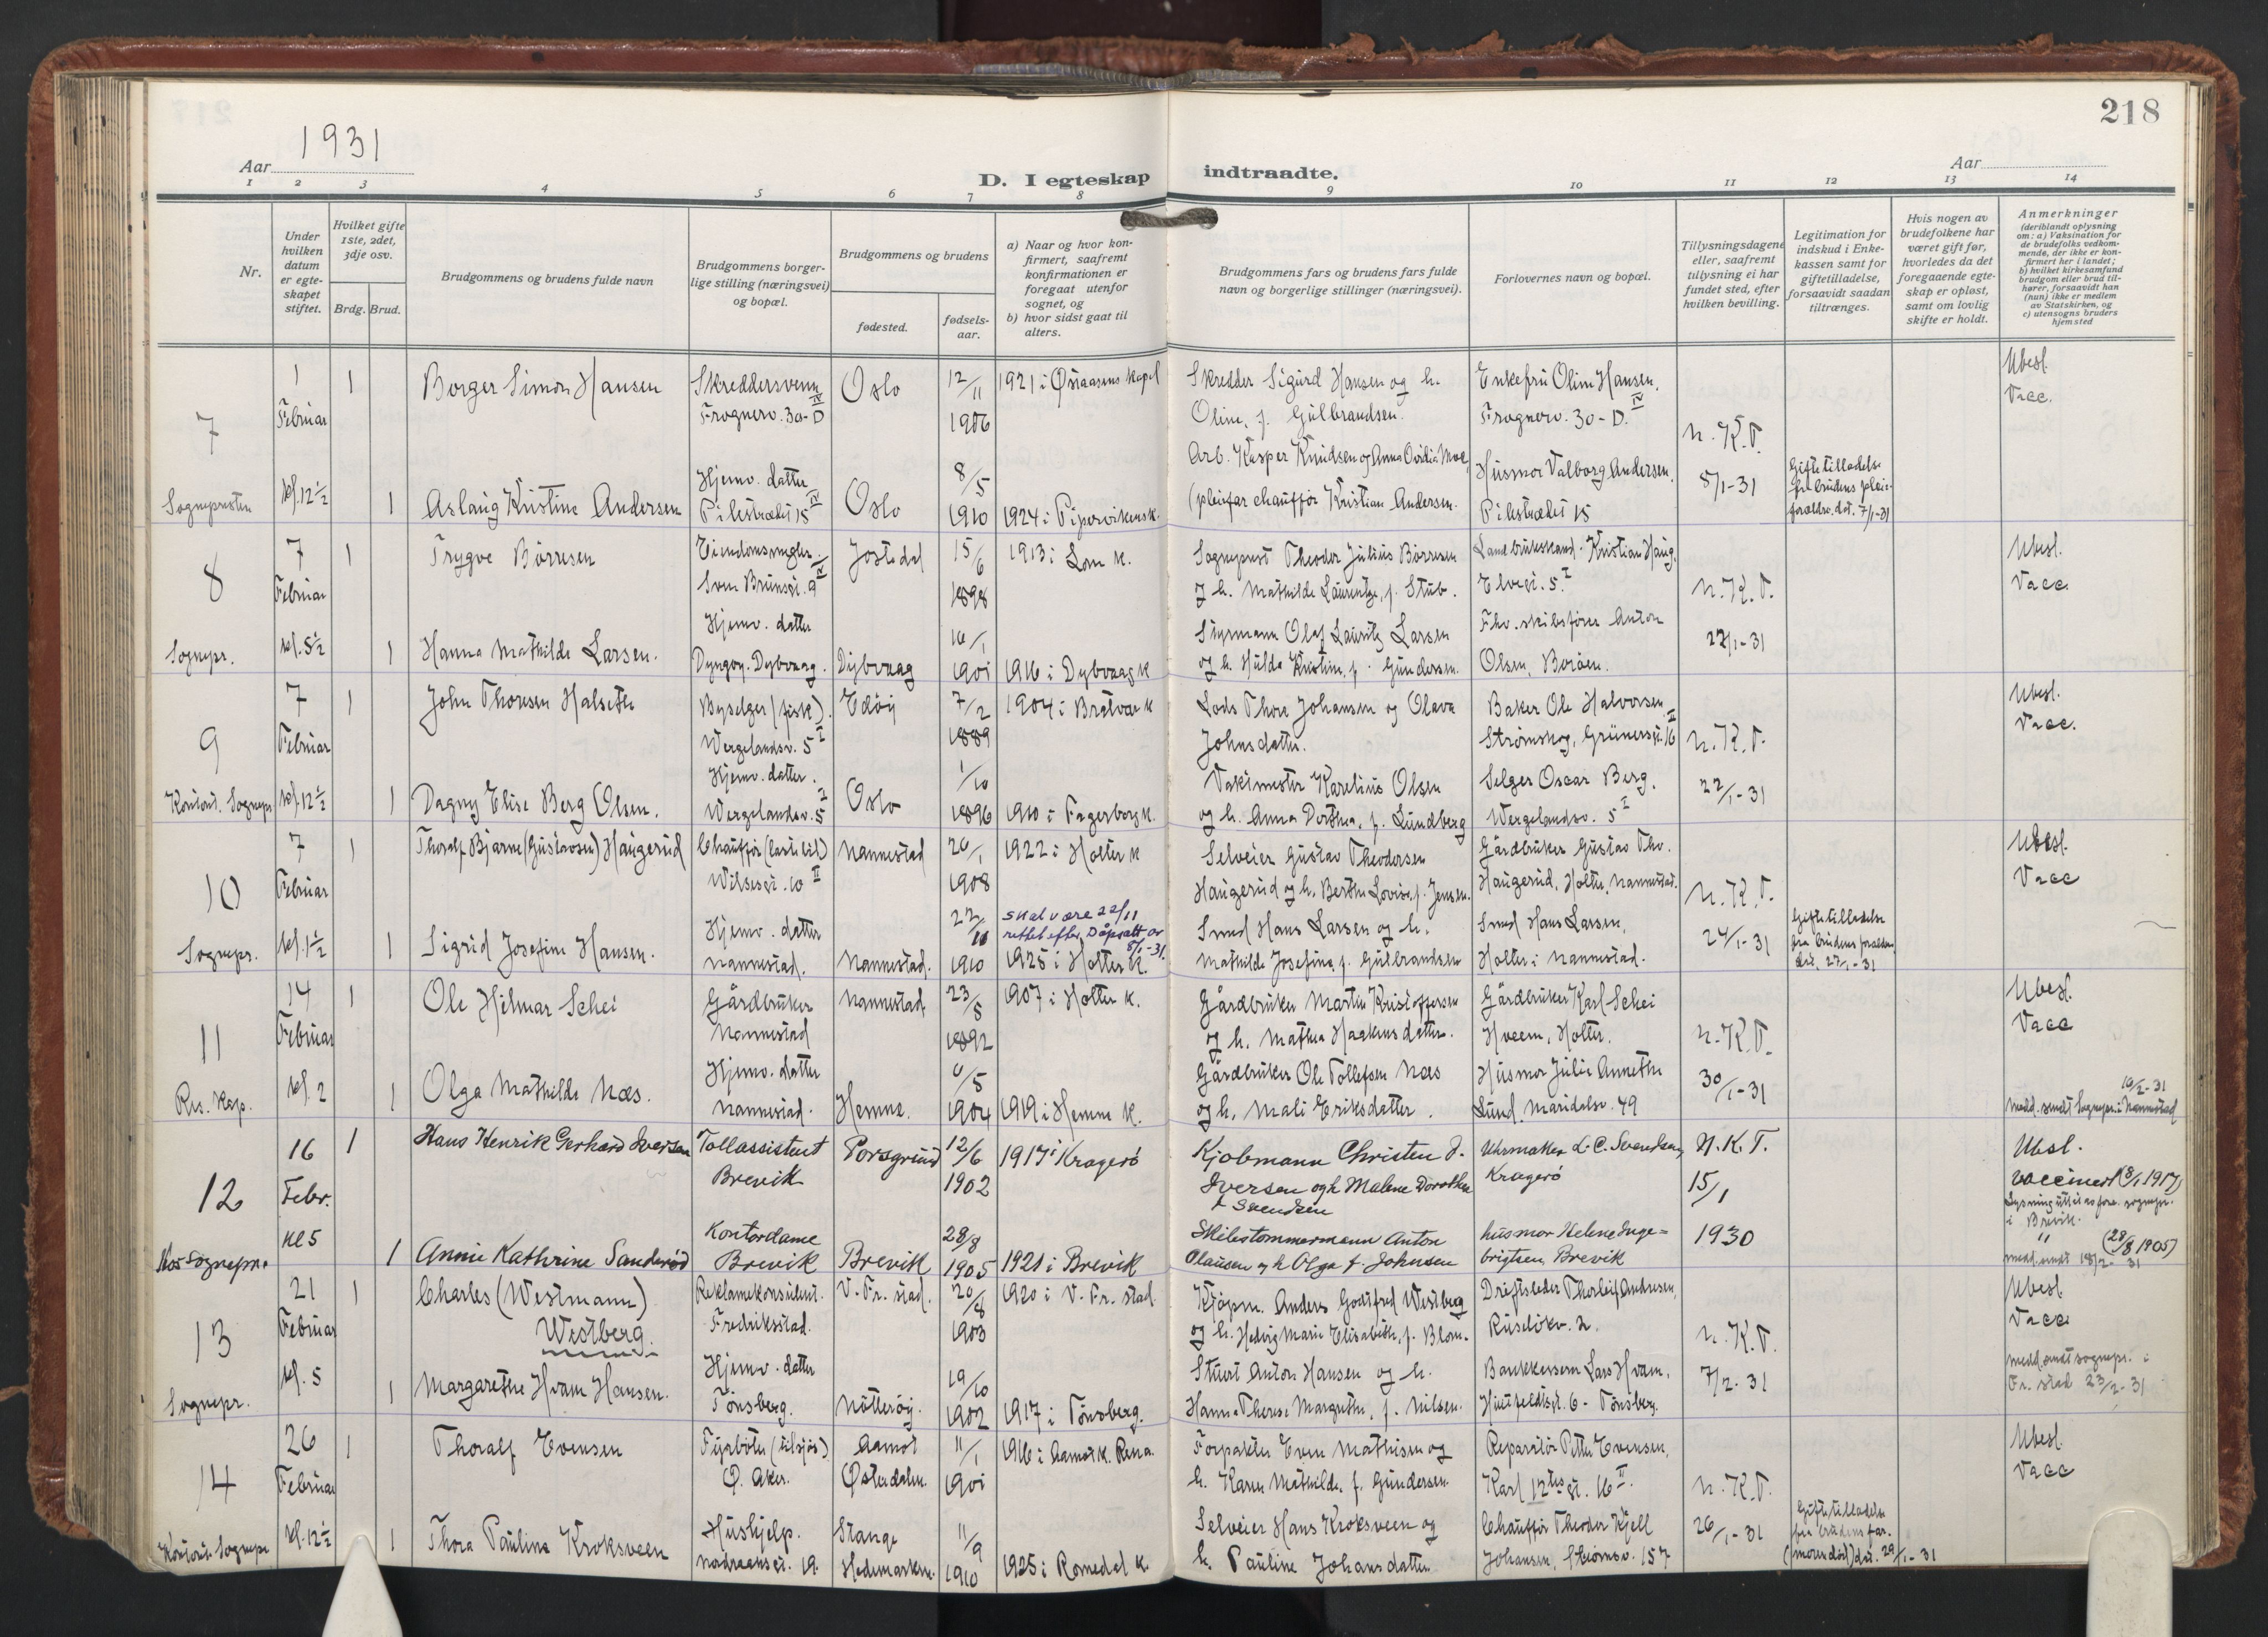 218
1931
Aar
Aar
D. I egteskap indtraadte.
1 2 3 4 5 6 7 8 9 10 11 12 13 14
Nr.
Under hvilken datum er egteskapet stiftet.
Hvilket gifte 1ste, 2det, 3dje osv.
Brdg. Brud.
Brudgommens og brudens fulde navn
Brudgommens borgerlige stilling (næringsvei) og bopæl.
Brudgommens og brudens
fødested.
fødselsaar.
a) Naar og hvor konfirmert, saafremt konfirmationen er foregaat utenfor sognet, og
b) hvor sidst gaat til alters.
Brudgommens fars og brudens fars fulde navn og borgerlige stillinger (næringsvei).
Forlovernes navn og bopæl.
Tillysningsdagene eller, saafremt tillysning ei har fundet sted, efter hvilken bevilling.
Legitimation for indskud i Enkekassen samt for giftetilladelse, forsaavidt saadan tiltrænges.
Hvis nogen av brudefolkene har været gift før, hvorledes da det foregaaende egteskap er opløst, samt om lovlig skifte er holdt.
Anmerkninger (deriblandt oplysning om: a) Vaksination for de brudefolks vedkommende, der ikke er konfirmert her i landet; b) hvilket kirkesamfund brudgom eller brud tilhører, forsaavidt han (hun) ikke er medlem av Statskirken, og c) utensogns bruders hjemsted
7
1 Februar kl. 12½
Sognepresten
1 Borger Simon Hansen
Skreddersvenn Frognerv. 30-D IV
Oslo
12/11 1906
1921 i Østaasens Kapel
Skredder Sigurd Hansen og h. Oline, f. Gulbrandsen.
Enkefru Oline Hansen, Frognerv. 30-D. IV
N.K.T.
Ubesl. Vacc.
1 Aslaug Kristine Andersen
Hjemv. datter Pilestrædet 15 IV
Oslo
8/5 1910
1924 i Pipervikens k.
Arb. Kasper Knudsen og Anna Ovidia Moe, (pleiefar chauffør Kristian Andersen.
Husmor Valborg Andersen, Pilestrædet 15
8/1-31
Giftetilladelse fr. brudens pleieforældre. dat. 7/1-31
8
7 Februar kl. 5½
Sognepr.
1 Trygve Børresen
Eiendomsmegler. Sven Brunsgt. 9 IV
Jostedal
15/6 1898
1913 i Lom k.
Sogneprest Theodor Julius Børresen og h. Mathilde Laurentze, f. Stub.
Landbrukskand. Kristian Haug, Elvegt. 5 I
N.K.T.
Ubesl. Vacc.
1 Hanna Mathilde Larsen.
Hjemv. datter Dyngøy. Dybvaag.
Dybvaag
16/1 1901
1916 i Dybvaag k
Styrmann Olaf Lauritz Larsen og h. Hulda Kristine, f. Gundersen.
Fhv. skibsfører Anton Olsen, Borøen.
22/1-31
9
7 Februar kl. 12½
Konst. Sognepr.
1 John Thoresen Halseth
Byselger (fisk). Wergelandsv. 5 I
Edøy
7/2 1889
1904 i Bratvær k
Lods Thore Johansen og Olava Johnsdatter.
Baker Ole Halvorsen Strømskog, Grünersgt. 16 II
N.K.T.
Ubesl. Vacc.
1 Dagny Elise Berg Olsen.
Hjemv. datter. Wergelandsv. 5 I
Oslo
1/10 1896
1910 i Fagerborg k.
Vaktmester Karelius Olsen og h. Anna Dorthea, f. Lundberg
Selger Oscar Berg. Wergelandsv. 5 I
22/1-31
10
7 Februar kl. 1½
Sognepr.
1 Thoralf Bjarne (Gustavsen) Haugerud
Chauffør (lastebil) Wilsesgt. 10 II
Nannestad
20/1 1908
1922 i Holter k
Selveier Gustav Theodorsen Haugerud og h. Berthe Lovise, f. Jensen.
Gårdbruker Gustav Thv. Haugerud, Holter, Nannestad.
N.K.T.
Ubesl. Vacc
1 Sigrid Josefine Hansen.
Hjemv. datter Nannestad.
Nannestad.
22/10 1910
skal være 22/11 rettet efter Dåpsatt. av 8/1-31.
1925 i Holter k.
Smed Hans Larsen og h. Mathilde Josefine, f. Gulbrandsen
Smed Hans Larsen, Holter i Nannestad.
24/1-31
Giftetilladelse fra brudens forældre, dat. 27/1-31
11
14 Februar kl. 2
Res. Kap.
1 Ole Hilmar Schei
Gårdbruker Nannestad
Nannestad
23/8 1892
1907 i Holter k.
Gårdbruker Martin Kristoffersen og h. Mathea Haakensdatter.
Gårdbruker Karl Schei Hveem, Holter.
N.K.T.
Ubesl. Vacc
1 Olga Mathilde Næs.
Hjemv. datter Nannestad.
Hemne.
6/5 1904
1919 i Hemne k.
Gårdbruker Ole Tollefsen Næs og h. Mali Eriksdatter.
Husmor Julie Annethe Lund. Maridalsv. 49
30/1-31
Medd. sendt Sognepr. i Nannestad 16/2-31
12
16 Febr. kl 5
Kst Sognepr.
1 Hans Henrik Gerhard Iversen
Tollassistent Brevik
Porsgrund
12/6 1902
1917 i Kragerø
Kjøbmann Christen J. Iversen og h Malene Dorothea f Svendsen
Uhrmaker L. C. Svendsen, Kragerø
N.K.T. 15/1 1930
Ubesl. vaccinert (8/1 1917)
Lysning utført av fore. sognepr. i Brevik.
1 Annie Kathrine Sanderød
Kontordame Brevik
Brevik
28/8 1905
1921 i Brevik
Skibstømmermann Anton Olausen og h Olga f. Johnsen
husmor Helene Ingebrigtsen, Brevik
" (28/8 1905)
medd. sendt 18/2-31
13
21 Februar kl. 5
Sognepr.
1 Charles (Westmann) Westberg.
Reklamekonsulent. Fredriksstad.
V. Fr. stad.
20/8 1903
1920 i V. Fr. stad
Kjøpm. Anders Godtfred Westberg og h. Hedvig Marie Elisabeth, f. Blom.
Driftsleder Thorleif Andresen, Ruseløkv. 2.
N.K.T.
Ubesl. Vacc
1 Margarethe Hvam Hansen.
Hjemv. datter Tønsberg.
Nøtterøy.
19/10 1902
1917 i Tønsberg.
Stuert Anton Hansen og h. Hanna Therese Margrethe, f. Nilsen.
Bankkasserer Lars Hvam, Huitfeldtsgt. 6 - Tønsberg.
7/2-31
medd. sendt sognepr. i Fr. stad 23/2-31
14
26 Februar kl. 12½
Konst. Sognepr
1 Thoralf Evensen
Fyrbøter (tilsjøs) Ø. Aker.
Aamot Østerdalen.
11/1 1901
1916 i Aamot k. Rena.
Forpakter Even Mathisen og h. Karen Mathilde, f. Gundersen.
Reparatør Petter Evensen, Karl 12tes gt. 16 II
N.K.T.
Ubesl. Vacc
1 Thora Pauline Kroksveen
Hushjelp. Nordraaksgt. 19.
Stange Hedemarken.
11/9 1910
1925 i Romedal k.
Selveier Hans Kroksveen og h. Pauline Johansdatter
Chauffør Theodor Kjell Johansen, Strømsv. 157
26/1-31
Giftetilladelse fra brudens far. (moren død) dat. 29/1-31